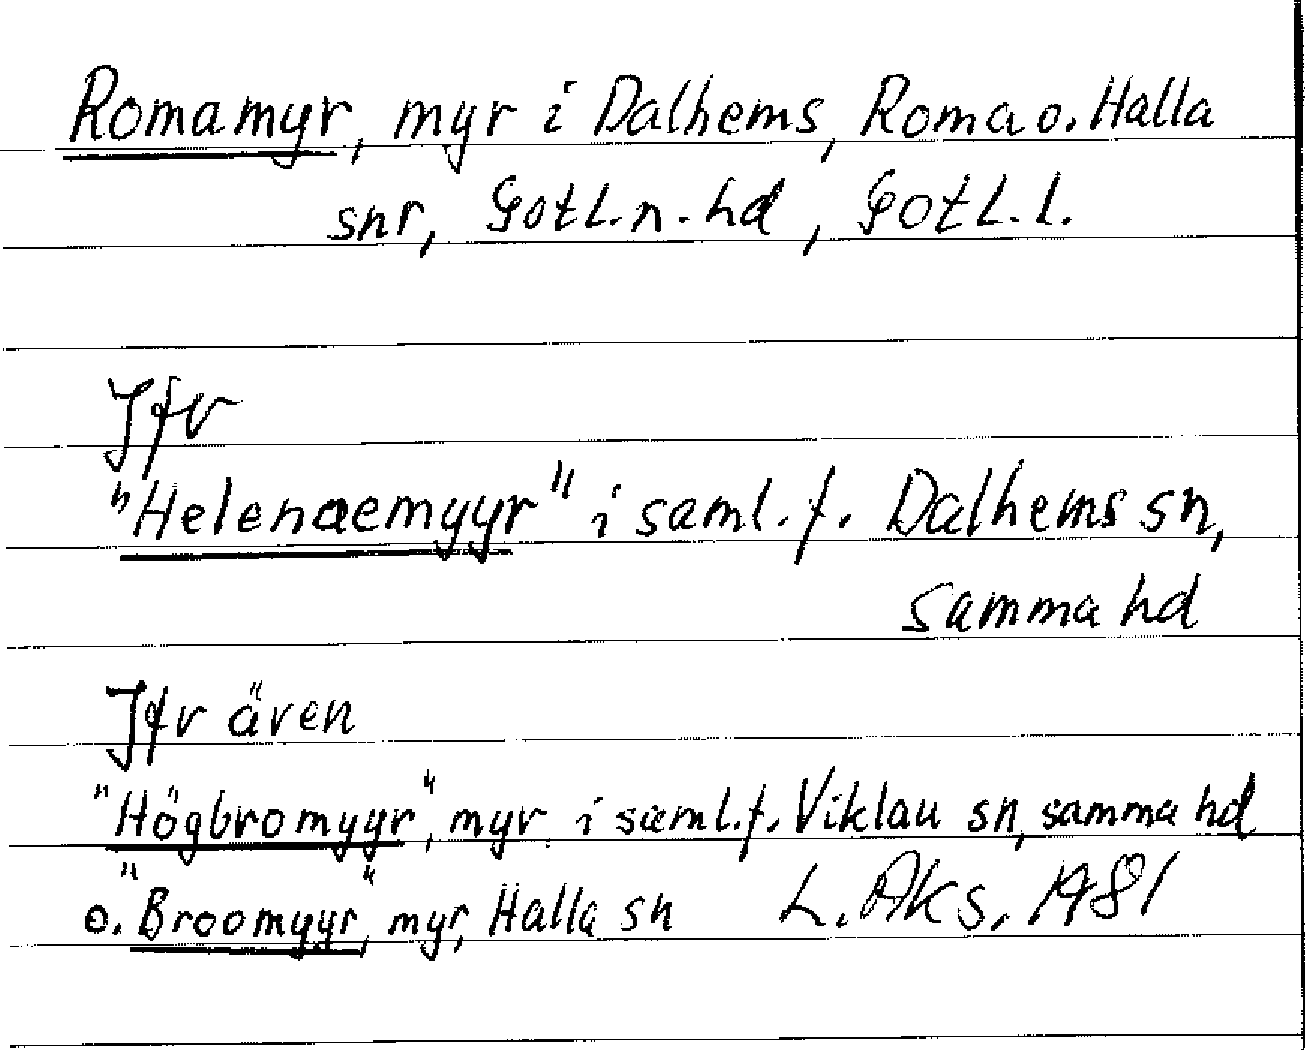 Romamyr, myr i Dalhems, Roma o. Halla
snr, Gotl. n. hd, Gotl. l.
Jfr
"Helenaemyyr" i saml. f. Dalhems sn,
samma hd
Jfr även
"Högbromyyr", myr i saml. f. Viklau sn, samma hd
o. "Broomyyr", myr, Halla sn L. Aks, 1981